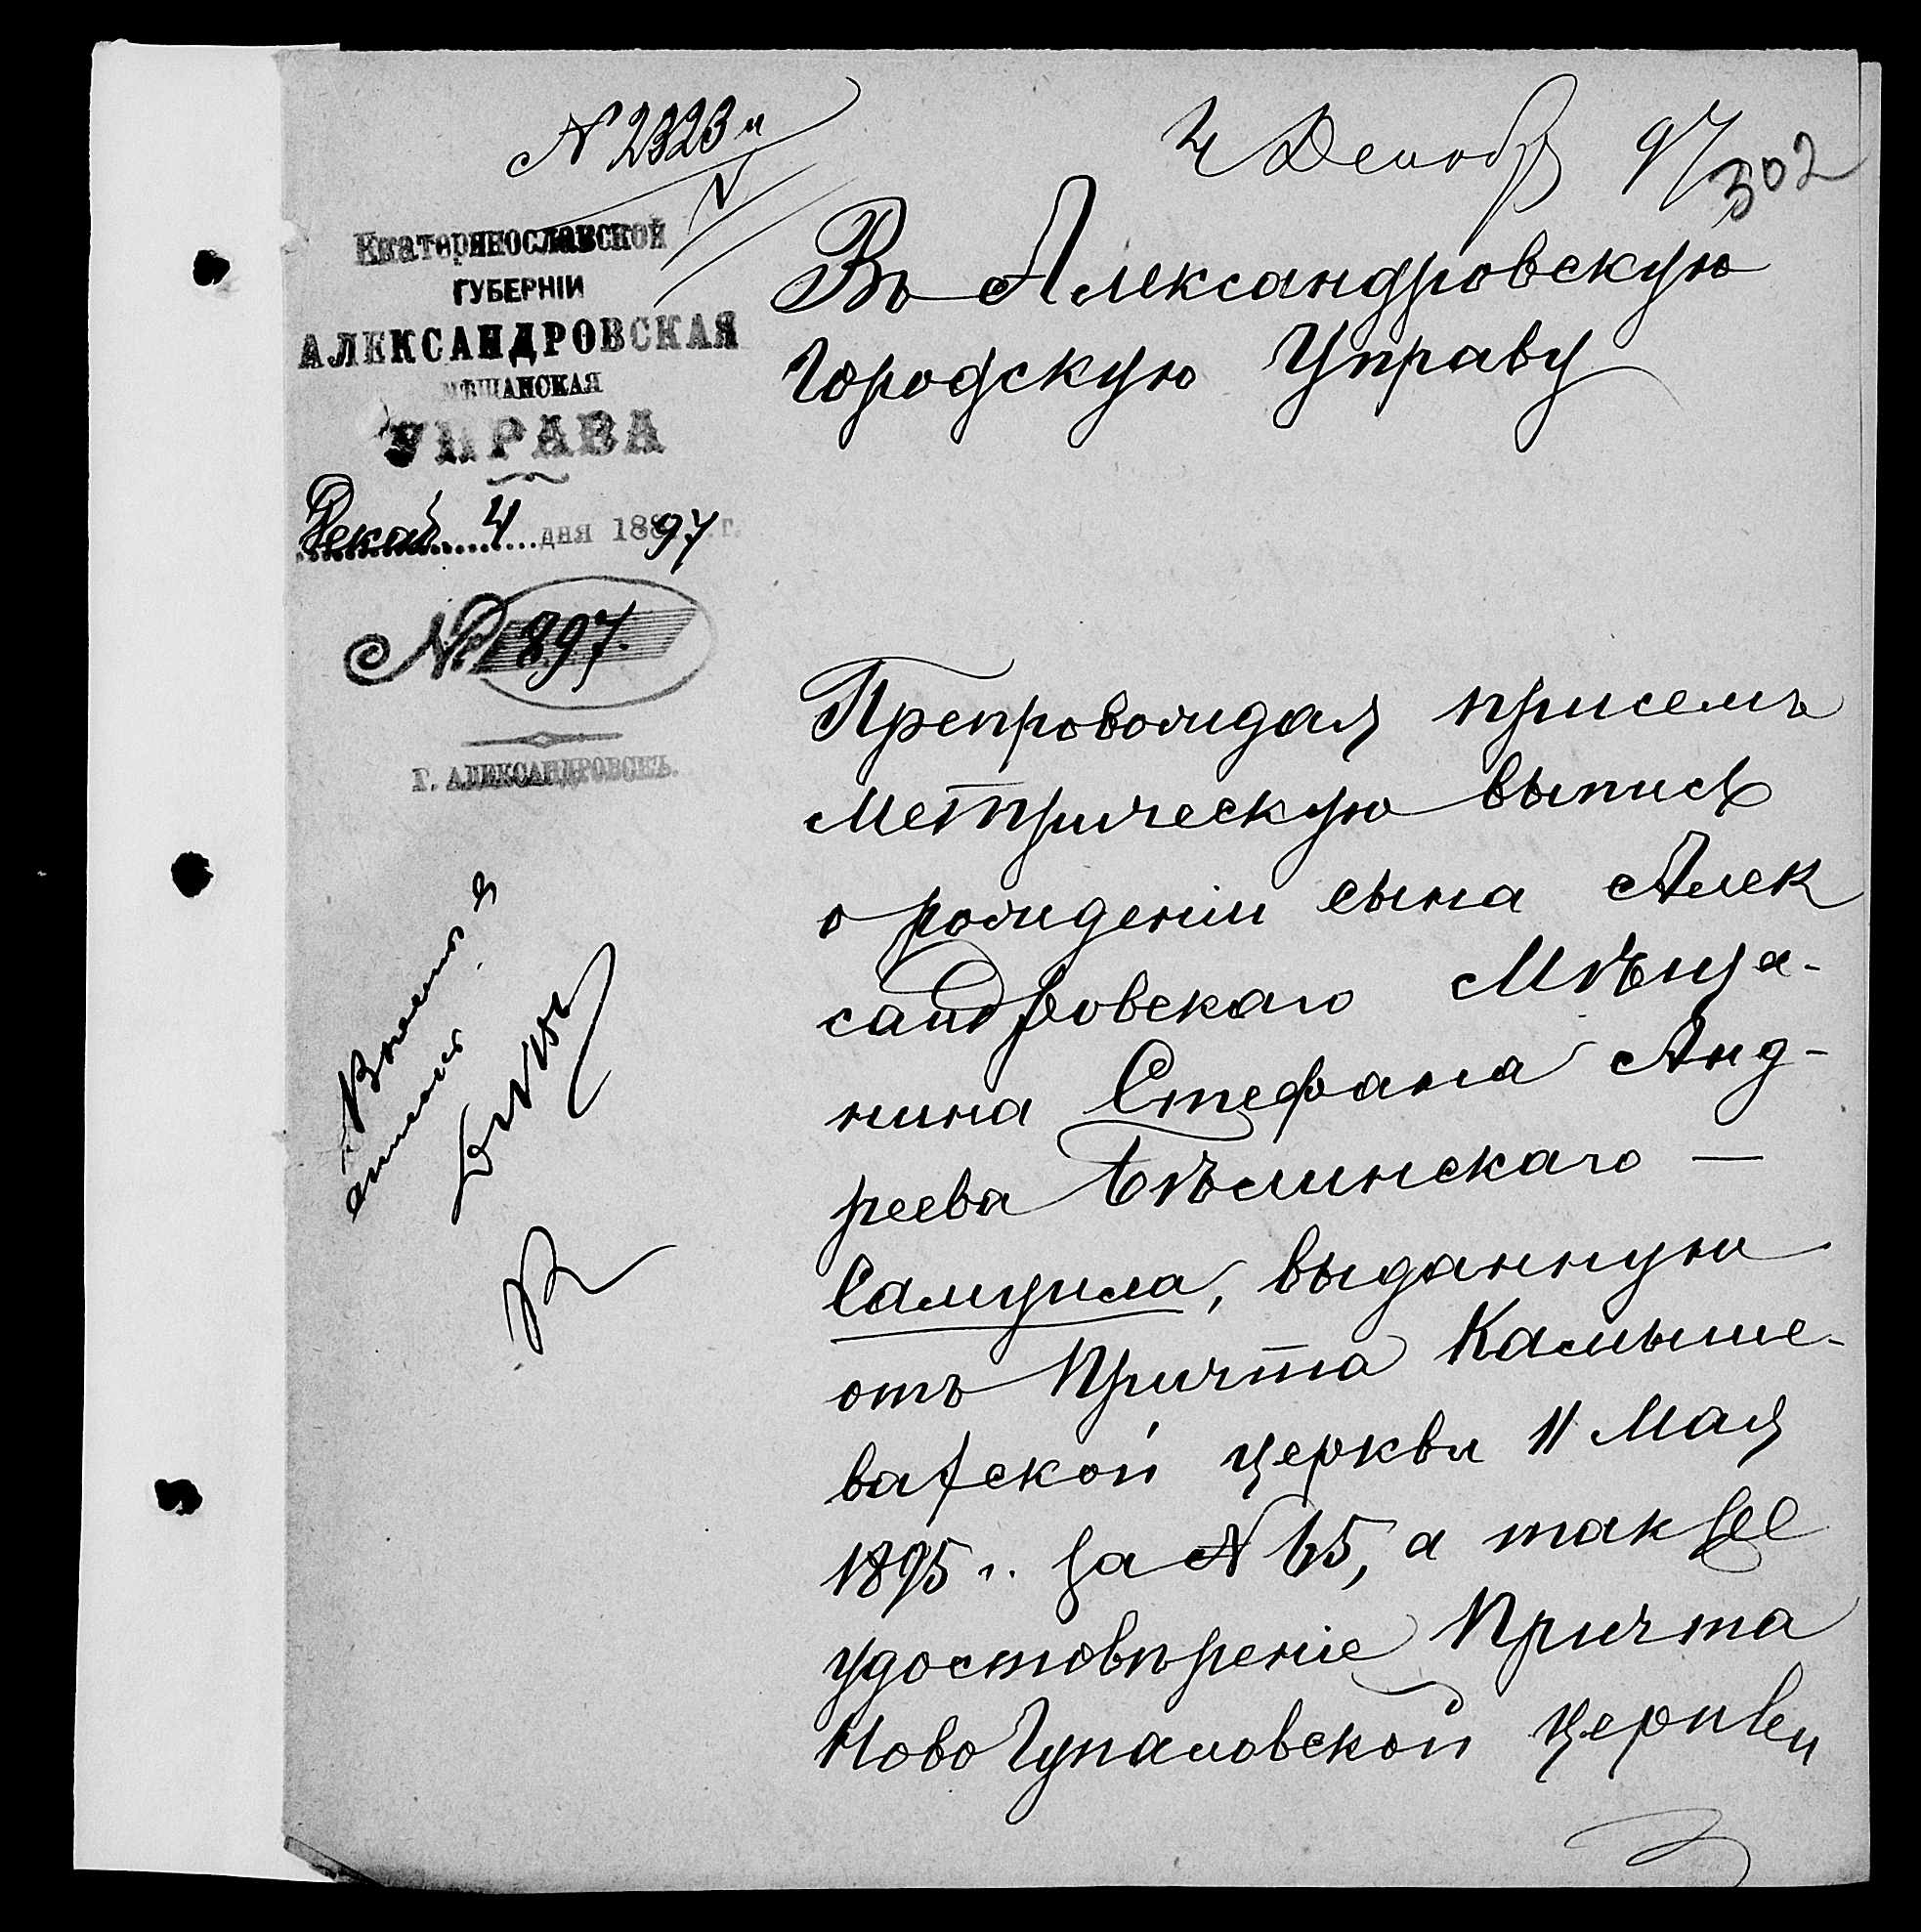 N 2323
4 Декабр 97
302
Екатеринославской
ГУБЕРНІИ
АЛЕКСАНДРОВСКАЯ
МѢЩАНСКАЯ
УПРАВА
Декаб. 4 дня 1897 г.
№ 1897.
Г. АЛЕКСАНДРОВСКЪ.
Въ Александровскую
Городскую Управу
Препровождая присемъ
Метрическую выпись
о рождении сына Алек
сандровскаго Мѣща-
нина Стефана Анд-
реева Бѣлинскаго —
Самуила, выданную
отъ Причта Камыше-
ватской церкви 11 Мая
1895 г. за N 65, а также
удостовѣреніе Причта
Ново Гупаловской церкви